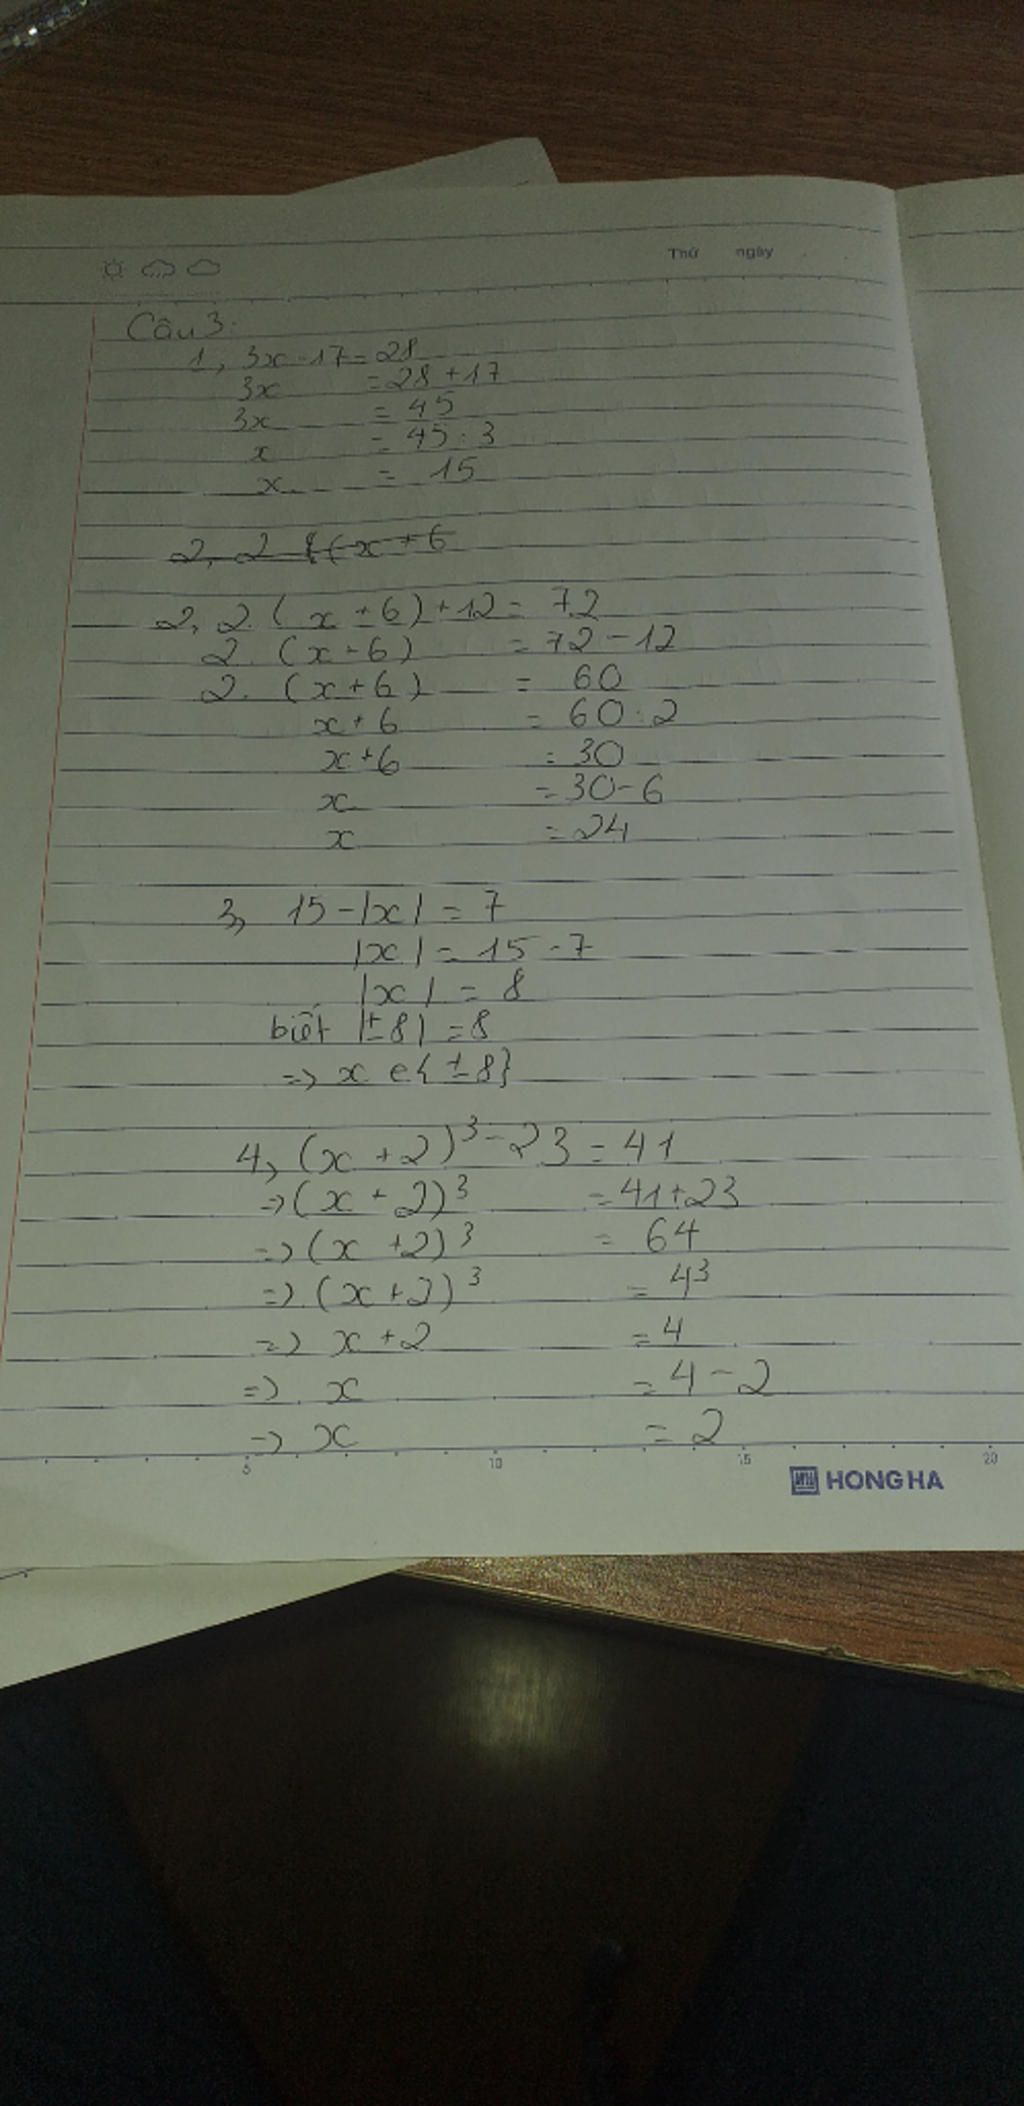 Thứ ngày
Câu 3:
1, 3x - 17 = 28
3x = 28 + 17
3x = 45
x = 45 : 3
x = 15
2, 2 {(x + 6
2, 2. (x + 6) + 12 = 72
2. (x + 6) = 72 - 12
2. (x + 6) = 60
x + 6 = 60 : 2
x + 6 = 30
x = 30 - 6
x = 24
3, 15 - |x| = 7
|x| = 15 - 7
|x| = 8
biết |±8| = 8
=> x e {±8}
4, (x + 2)³ - 23 = 41
=> (x + 2)³ = 41 + 23
=> (x + 2)³ = 64
=> (x + 2)³ = 4³
=> x + 2 = 4
=> x = 4 - 2
=> x = 2
5 10 15 20
HONG HA